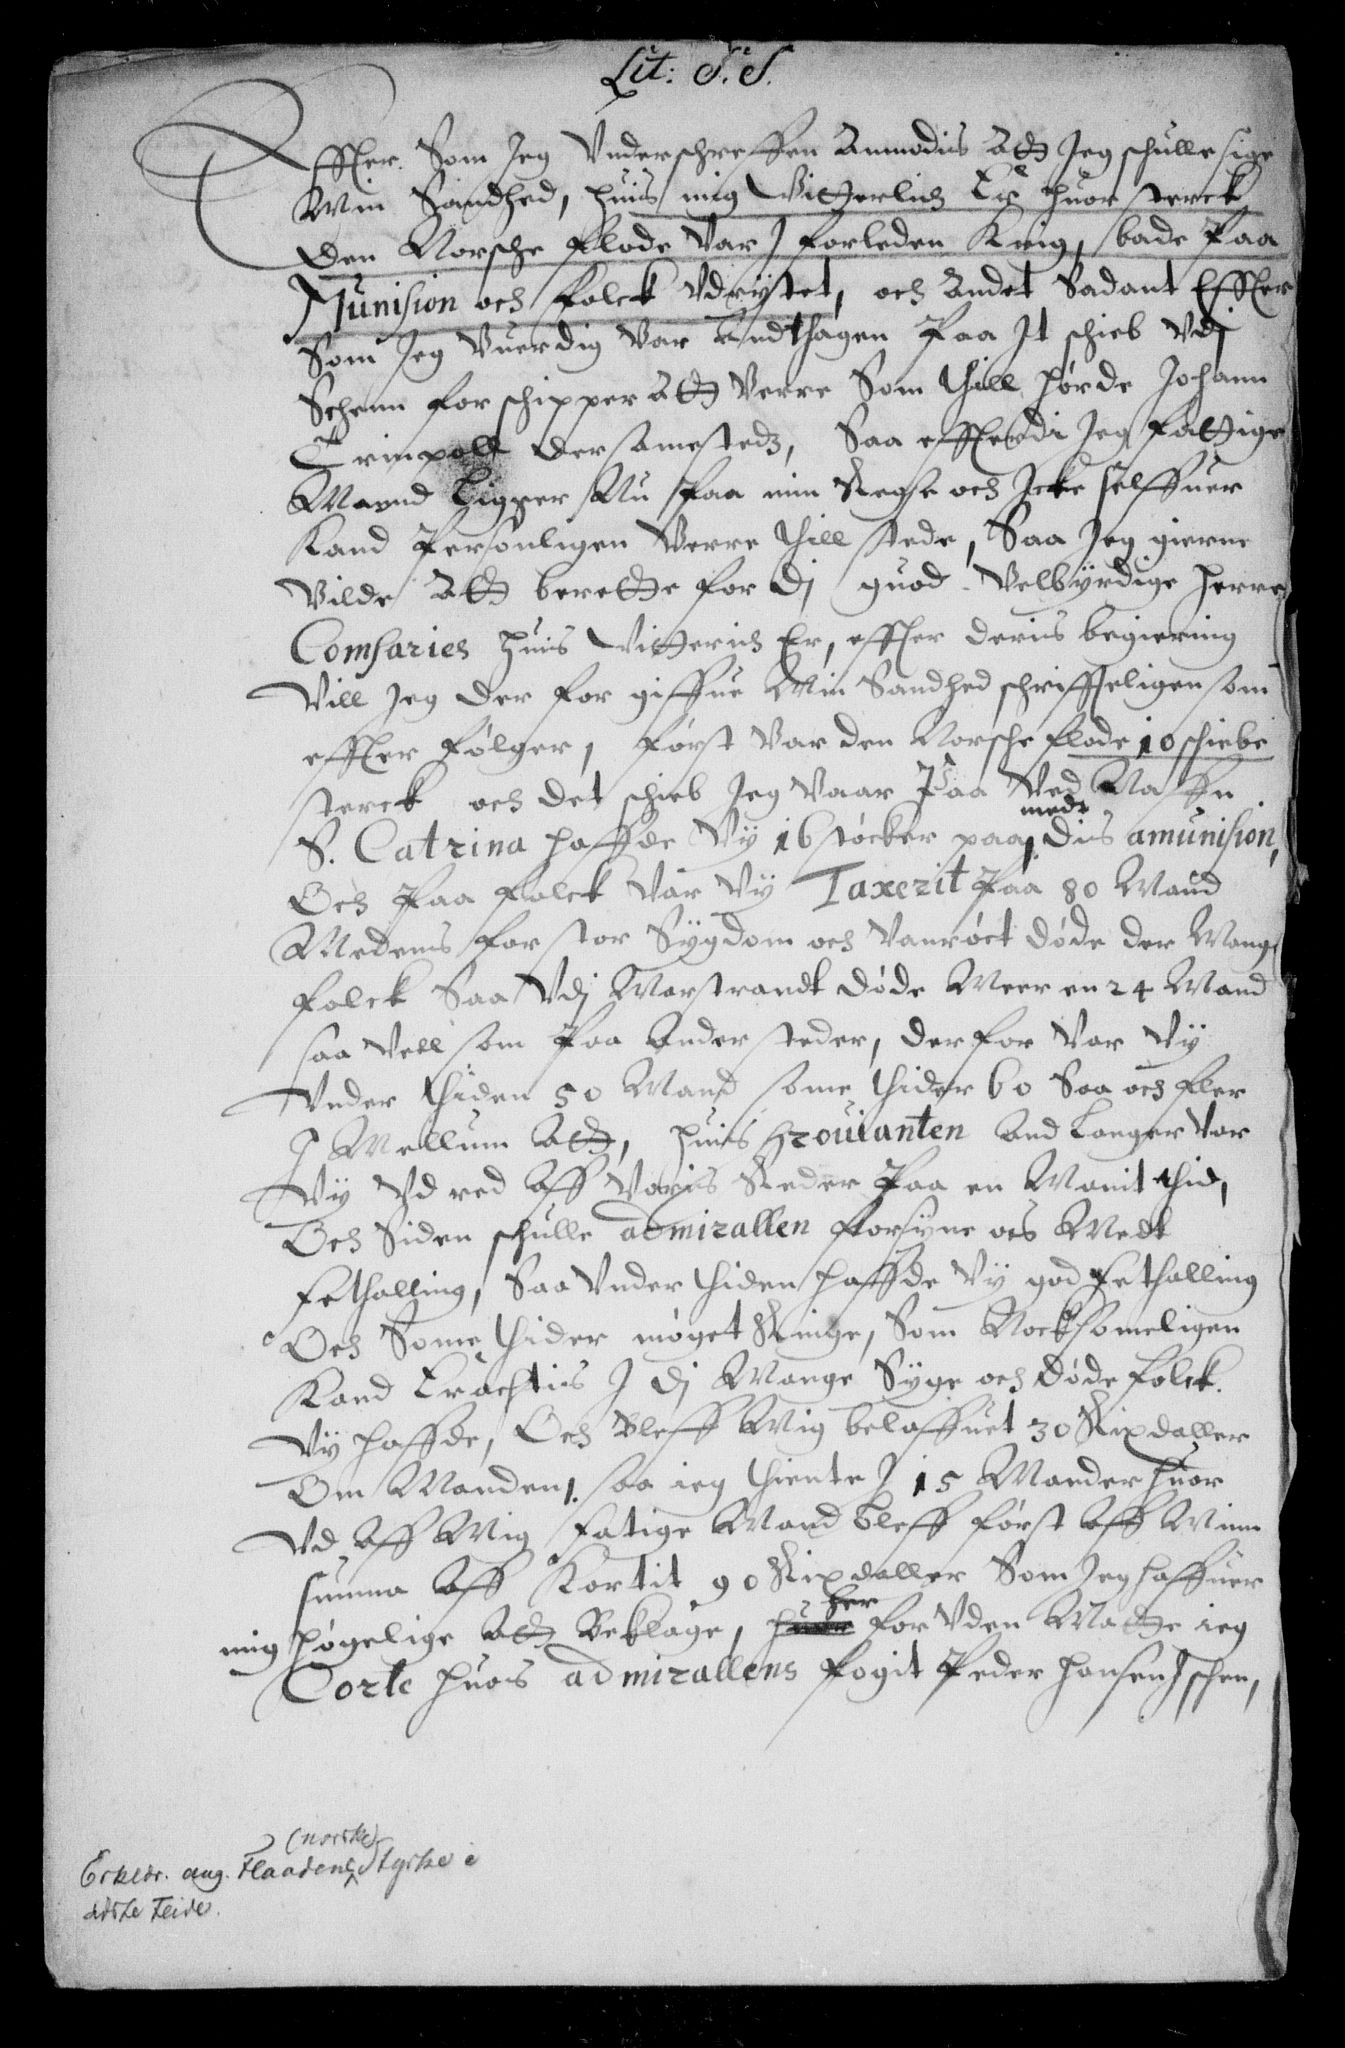 Lit: S. S.
Effter Som Jeg Underschreffen Anmodis Att Jeg schulle sige
Min Sandhed, huis mig Vitterlich Er huor sterck
den Norsche Flode Var J forleden Krig, bade Paa
Munision och folck Udrÿstet, och Andet Sadant Effter
Som Jeg Vuerdig Var Andthagen Paa Jt schieb Udj
Scheen for schipper Att Verre Som thill hørde Johann
Trimpolt dersamesteds, Saa efftterdi Jeg fattige
Mannd Ligger Nu Paa min Reyse och Jcke selffuer
Kand Personligen Verre thill stede, Saa Jeg gierne
Vilde Att berette for dj guod Velbÿrdige Herre
Comsaries huis Vitterich Er, effter deris begiering
Vill Jeg der for giffue Min Sandhed schrifftteligen som
effter følger, først Var den Norsche flode 10 schiebe
sterck och det schieb Jeg Vaar Paa Ved Naffn
S. Catrina haffde Vÿ 16 støcker paa med dis amunision,
Och Paa folck Var Vÿ Taxerit Paa 80 Mand
Medens for stor Sÿgdom och Vanrøct døde der Mange
folck Saa Udj Marstrandt døde Meer en 24 Mand
saa Vell som Paa Ander steder, der for Var Vÿ
Under thiden 50 Mand some thider 60 Saa och fler
J Mellum Att, huis prouianten And Langer Var
Vÿ Ud red Aff Voris Reder Paa en Manit thid,
Och Siden schulle admirallen forsÿne os Medt
fethalling, Saa Under thiden haffde Vÿ god Fethalling
Och Some thider møget Ringe, Som Nocksomeligen
Kand Erachtis J dj Mange Sÿge och døde folck
Vÿ haffde, Och Bleff Mig belaffuet 30 Rixdaller
Om Manden, saa ieg thiente J 15 Mander huor
Ud Aff Mig Fatige Mand bleff først Aff Minn
summa Aff Kortit 90 Rixdaller Som Jeg haffuer
mig høgelige Att Beklage, her for Uden Matte ieg
Corte huos admirallens fogit Peder Hansen J schen,
(norske)
Erklær. ang. Flaadens Styrke i
sidste Feide.